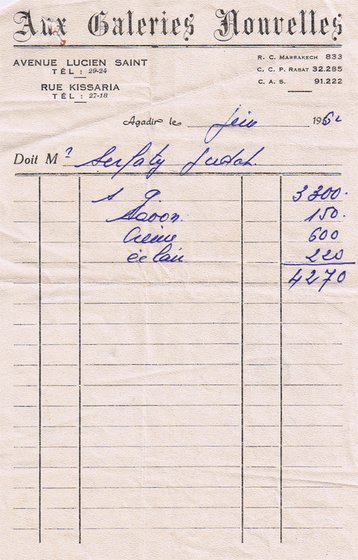 Aux Galeries Nouvelles
AVENUE LUCIEN SAINT
TÉL : 29-24
RUE KISSARIA
TÉL : 27-18
R. C. MARRAKECH 833
C. C. P. RABAT 32.285
C. A. S. 91.222
Agadir le juin 196
Doit Mr Serfaty Judah
3300.
Savon 150.
Crème 600
éclair 220
4270